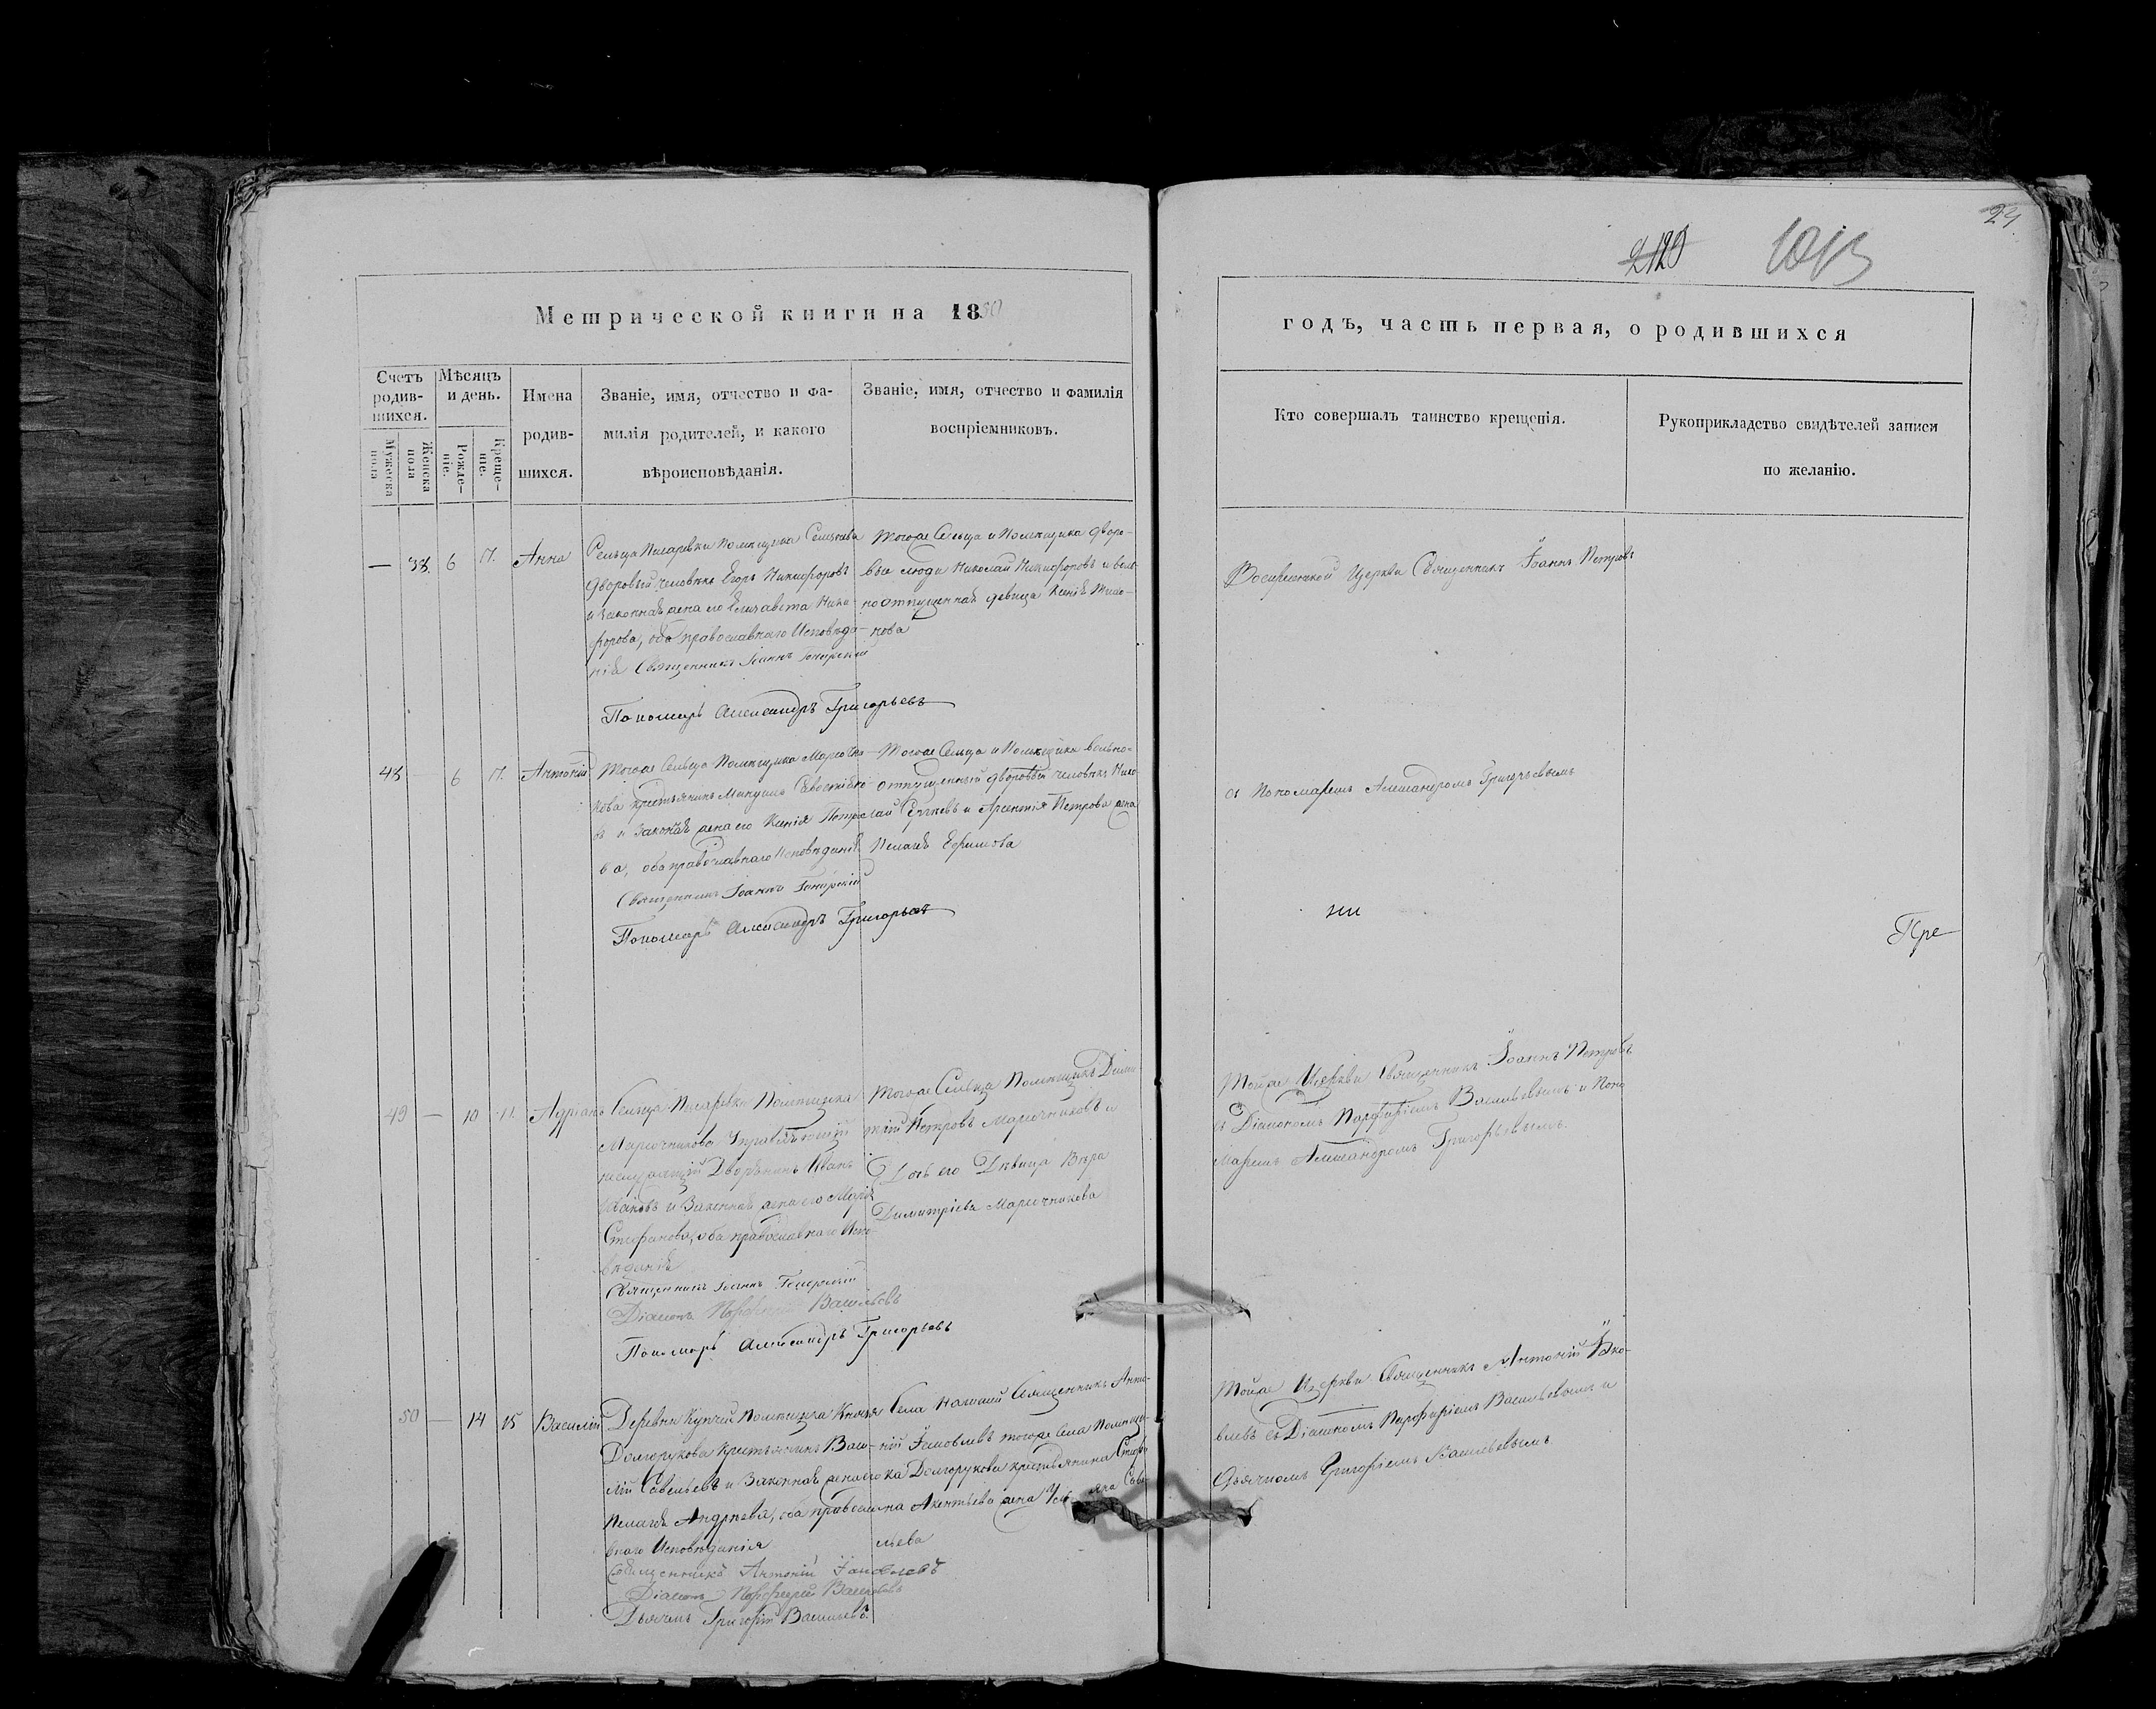 24
2120
Метрической книги на 1850
годъ, часть первая, о родившихся
Счетъ родив-шихся.
Мужеска пола
Женска пола
Мѣсяцъ и день.
Рожде-ніе.
Креще-ніе.
Имена родив-шихся.
Званіе, имя, отчество и фа-
милія родителей, и какого
вѣроисповѣданія.
Званіе, имя, отчество и фамилія
воспріемниковъ.
Кто совершалъ таинство крещенія.
Рукоприкладство свидѣтелей записи
по желанію.
— 38. 6 17. Анна
Сельца Писаревки Помѣщика
дворовый человѣкъ Егоръ Никифоровъ
и законная жена его Елизавета Ники-
форова, оба православнаго Исповѣда-
нія Священникъ Іоаннъ
Пономарь Александръ Григорьевъ
Тогоже Сельца и Помѣщика дворо-
вые люди Николай Никифоровъ и воль-
но отпущенная девица Ксенія
нова
Церкви Священникъ Іоаннъ Петровъ
48 6 17. Антоній
Тогоже Сельца Помѣщика Марсочни-
кова крестьянинъ
въ и законная жена его Ксенія Петро-
ва, оба православнаго Исповѣданія
Священникъ Іоаннъ
Пономарь Александръ Григорьевъ
Тогоже Сельца и Помѣщика вольно-
отпущенный дворовый человѣкъ Нико-
лай Сергѣевъ и Арсентія Петрова жена
Пелагія Ефимова
съ Пономаремъ Александромъ Григорьевымъ
ни
Пре
49 — 10 11. Адріанъ
Сельца Писаревки Помѣщика
Марсочникова
Дворянинъ Иванъ
Ивановъ и Законная жена его Марія
Стефанова, оба православнаго Испо-
вѣданія
Священникъ Іоаннъ
Діаконъ Порфирій Васильевъ
Пономарь Александръ Григорьевъ
Тогоже Сельца Помѣщикъ Дими-
трій Петровъ Марсочниковъ и
Дочь его Дѣвица Вѣра
Димитріева Марсочникова
Тойже Церкви Священникъ Іоаннъ Петровъ
съ Діакономъ Парфиріемъ Васильевымъ и Поно-
маремъ Александромъ Григорьевымъ.
50 — 14 15 Василій
Деревни Купчей Помѣщика Князя
Долгорукова Крестьянинъ Васи-
лій Савельевъ и Законная жена его
Пелагія Андреева, оба православ-
наго Исповѣданія
Священникъ Антоній Іаковлевъ
Діаконъ Порфирій Васильевъ
Дьячекъ Григорій Васильевъ
Села Священникъ Анто-
ній Іаковлевъ тогоже Села Помѣщи-
ка Долгорукова крестьянина
на жена
льева
Тойже Церкви Священникъ Антоній Іако-
влевъ съ Діакономъ Парфиріемъ Васильевымъ и
Дьячкомъ Григоріемъ Васильевымъ